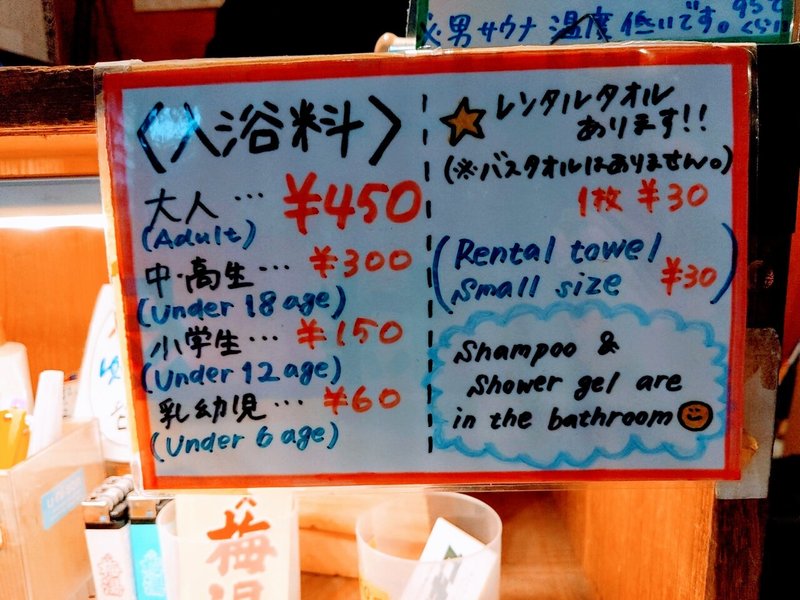 ※男サウナ 温度 低いです。95℃
くらい
〈入浴料〉
大人… ¥450
(Adult)
中・高生… ¥300
(Under 18 age)
小学生… ¥150
(Under 12 age)
乳幼児… ¥60
(Under 6 age)
レンタルタオル
あります!!
(※バスタオルはありません。)
1枚 ¥30
(Rental towel
Small size ¥30)
Shampoo &
Shower gel are
in the bathroom
梅湯